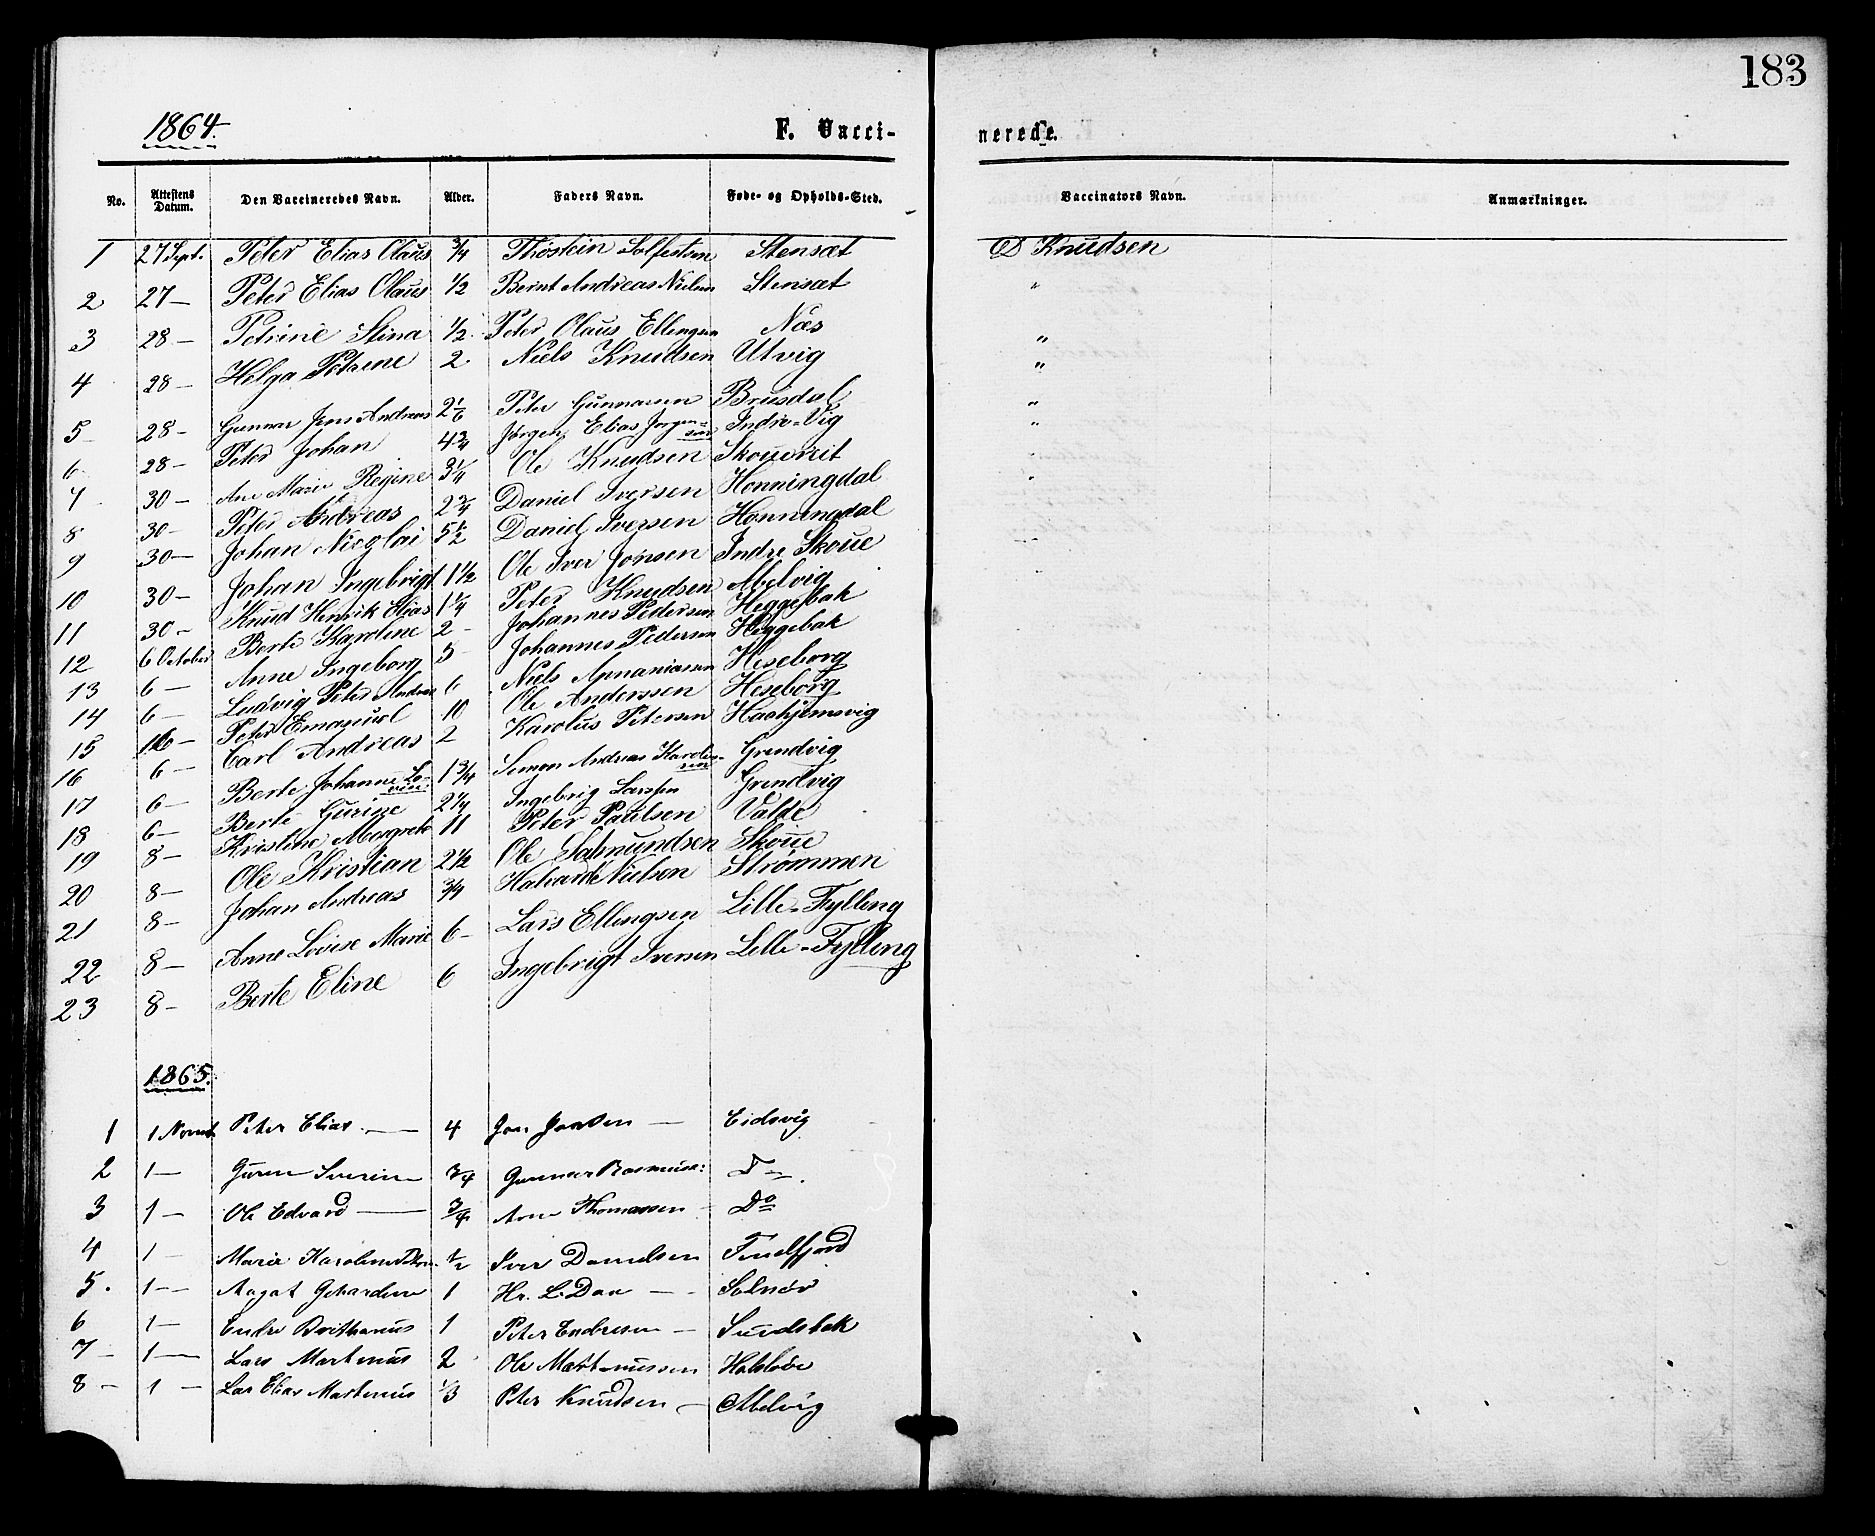 183
1864.
F. Vaccinerede.
No. Attestens Datum. Den Vaccineredes Navn. Alder. Faders Navn. Føde- og Opholds-Sted. Vaccinators Navn. Anmærkninger.
1 27 Sept. Peter Elias Olaus 3/4 Thøstein Solfestsen Stensæt D Knudsen
2 27 — Peter Elias Olaus 1/2 Bernt Andreas Nielsen Stensæt "
3 28 — Petrine Stina 1/2 Peter Olaus Ellingsen Næs "
4 28 — Helga Petrine 2 Niels Knudsen Utvig "
5 28 — Gunnar Jens Andreas 2 1/6 Peter Gunnarsen Brusdal "
6 28 — Peter Johan 4 3/4 Jørgen Elias Jørgensen Indre-Vig "
7 30 — Ane Marie Regine 3 1/4 Ole Knudsen Skouereit
8 30 — Peter Andreas 2 3/4 Daniel Iversen Honningdal
9 30 — Johan Nicolai 5 1/2 Daniel Iversen Honningdal
10 30 — Johan Ingebrigt 1 1/2 Ole Iver Jonsen Indre Skoue
11 30 — Knud Henrik Elias 1 1/4 Peter Knudsen Abelvig
12 6 October Berte Karoline 2 — Johannes Pedersen Heggebak
13 6 — Anne Ingeborg 5 Johannes Pedersen Heggebak
14 6 — Ludvig Peter Andreas 6 Niels Ananiassen Heseborg
15 6 — Peter Emanuel 10 Ole Anderssen Heseborg
16 6 — Carl Andreas 2 Karolus Petersen
17 6 — Berte Johanne Lovise 1 3/4 Simon Andreas Karolussen Grendvig
18 6 — Berte Gurine 2 1/4 Ingebrig Larssen Grendvig
19 8 — Kristine Margrete 11 Peter Paulsen Valde
20 8 — Ole Kristian 2 1/2 Ole Salmundsen Skoue
21 8 — Johan Andreas 3/4 Nielsen Strømmen
22 8 — Anne Lovise Marie 6 — Lars Ellingsen Lille-Fylling
23 8 — Berte Eline 6 Ingebrigt Iversen Lille-Fylling
1865.
1 1 Novmb. Peter Elias — 4 Jon Jonsen — Eidsvig
2 1 — Guren Severin 3/4 Gunnar Rasmuss:
3 1 — Ole Edvard — 3/4 Arne Thomassen — Do
4 1 — Marie Karoline 1/2 Iver Danielsen Tenefjord
5. 1 — Aagot 1 Hr. L. Daa — Solnør
6 1 — Endre Brithanus 1 Peter Endresen — Sundsbak
7 — 1 — Lars Martinus 2 Ole Martinussen
8 — 1 — Lars Elias Martinus 1/3 Peter Knudsen — Abelvig